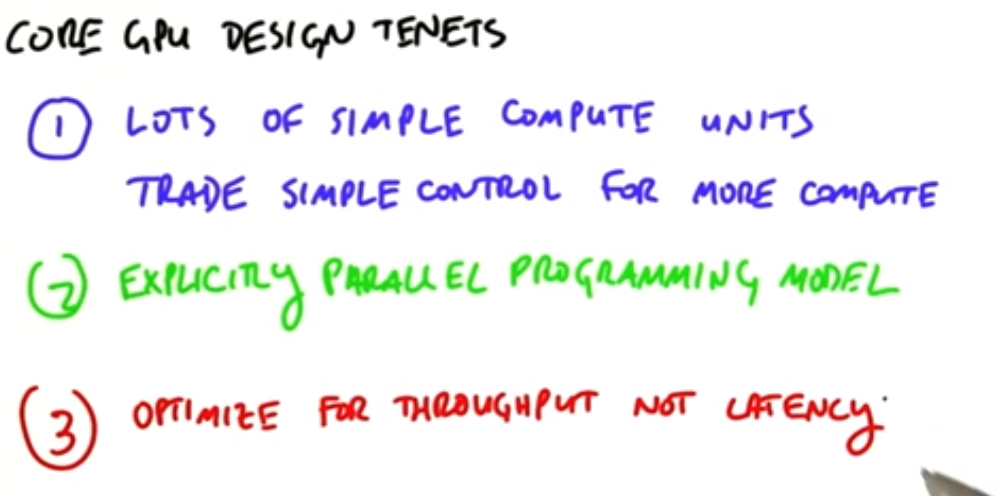 CORE GPU DESIGN TENETS
① LOTS OF SIMPLE COMPUTE UNITS
TRADE SIMPLE CONTROL FOR MORE COMPUTE
② EXPLICITLY PARALLEL PROGRAMMING MODEL
③ OPTIMIZE FOR THROUGHPUT NOT LATENCY